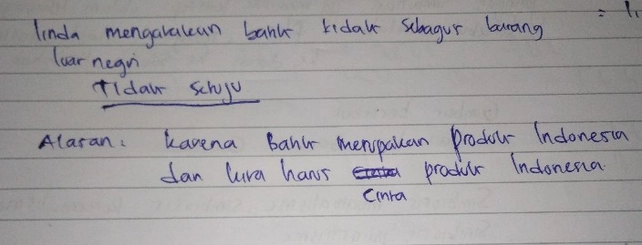 linda mengatakan bahk tidak sebagus barang
luar negri
Tidak setuju
Alasan: karena Bahk merupakan produk Indonesia
dan kita harus produk Indonesia.
Cinta